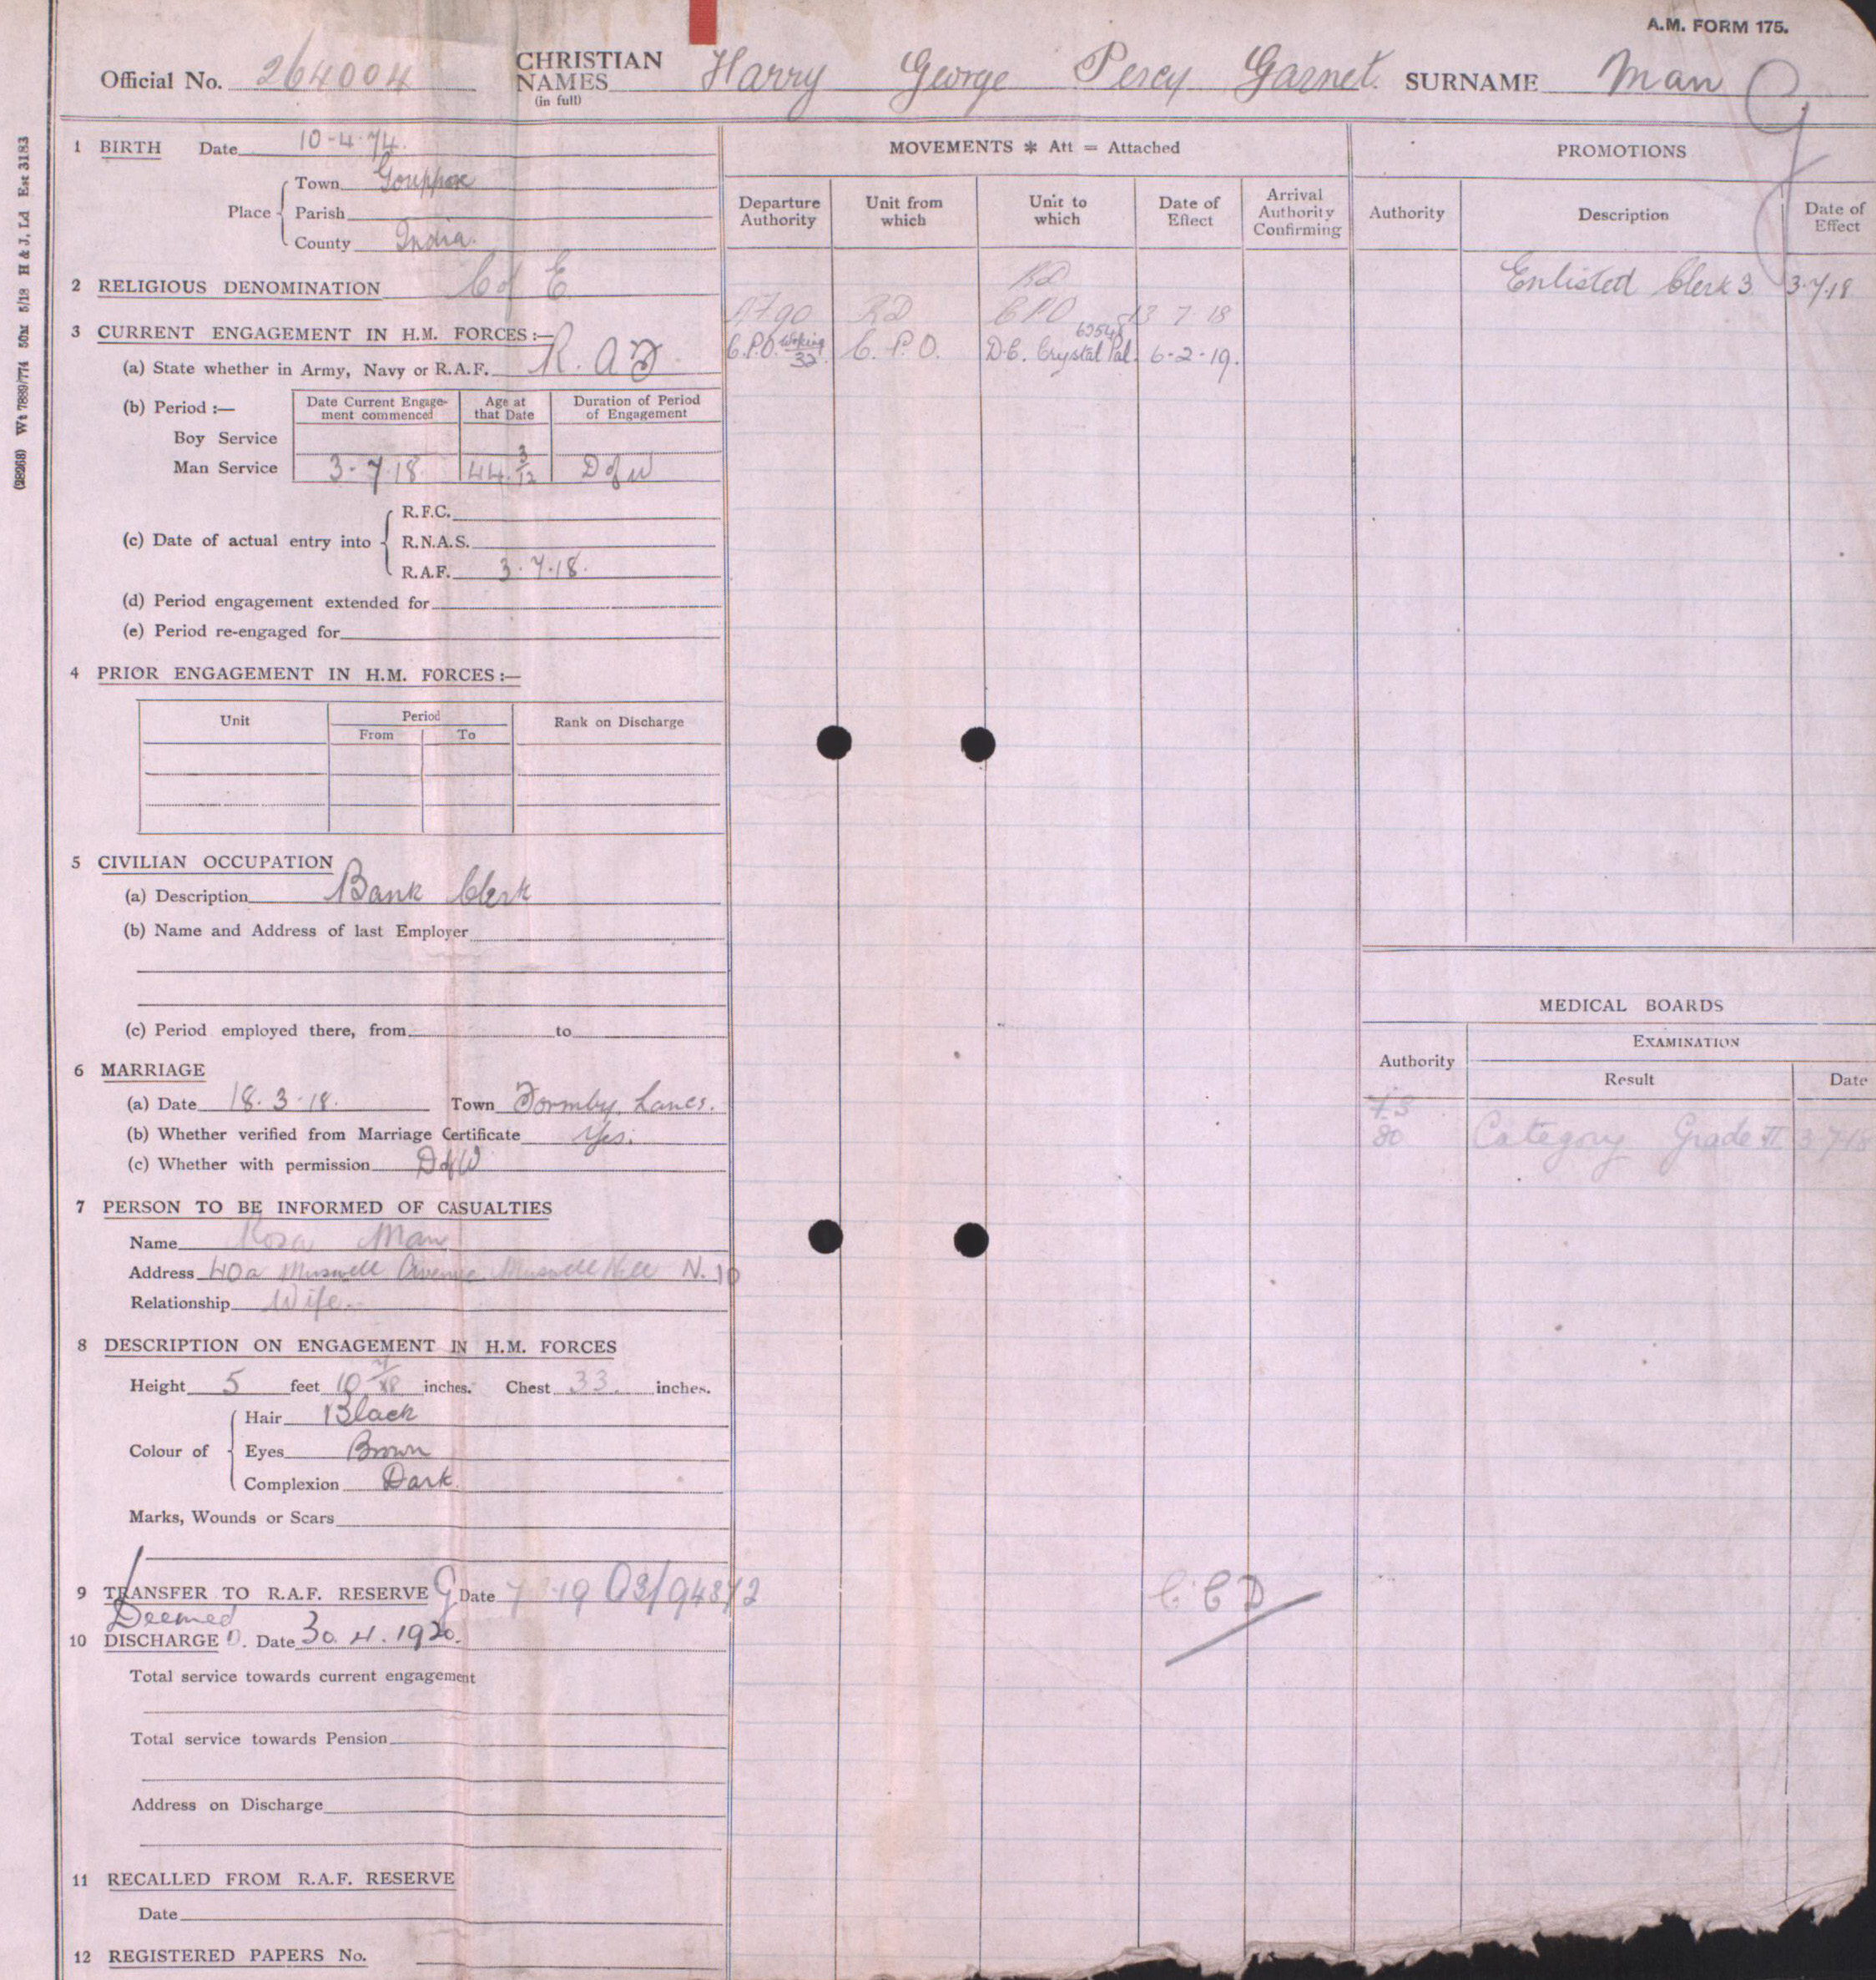 A.M. FORM 175.
Official No. 264004 CHRISTIAN NAMES (in full) Harry George Percy Garnet. SURNAME Man
(28268) Wt 7889/774 50M 5/18 H & J, Ld Est 3183
1 BIRTH Date 10-4-74.
Place Town
Parish
County India.
2 RELIGIOUS DENOMINATION C of E
3 CURRENT ENGAGEMENT IN H.M. FORCES:—
(a) State whether in Army, Navy or R.A.F. R.A.F.
(b) Period :— Date Current Engage- ment commenced Age at that Date Duration of Period of Engagement
Boy Service
Man Service 3-7-18 44 3/12 D of W
(c) Date of actual entry into R.F.C.
R.N.A.S.
R.A.F. 3.7.18.
(d) Period engagement extended for
(e) Period re-engaged for
4 PRIOR ENGAGEMENT IN H.M. FORCES:—
Unit Period Rank on Discharge
From To
5 CIVILIAN OCCUPATION
(a) Description Bank Clerk
(b) Name and Address of last Employer
(c) Period employed there, from to
6 MARRIAGE
(a) Date 18.3.18. Town Formby, Lancs.
(b) Whether verified from Marriage Certificate Yes.
(c) Whether with permission D of W
7 PERSON TO BE INFORMED OF CASUALTIES
Name Rosa Man
Address 40a Muswell Avenue Muswell Hill N.10
Relationship Wife
8 DESCRIPTION ON ENGAGEMENT IN H.M. FORCES
Height 5 feet 10 inches. Chest 33 inches.
Colour of Hair Black
Eyes Brown
Complexion Dark.
Marks, Wounds or Scars
9 TRANSFER TO R.A.F. RESERVE G Date
Deemed
10 DISCHARGED. Date 30.4.1920.
Total service towards current engagement
Total service towards Pension
Address on Discharge
11 RECALLED FROM R.A.F. RESERVE
Date
12 REGISTERED PAPERS No.
MOVEMENTS * Att = Attached
Departure Authority Unit from which Unit to which Date of Effect Arrival Authority Confirming
RD
RD CPO 13 7 18
C.P.O. Woking 32. C.P.O. D.C. Crystal Pal. 6-2-19.
PROMOTIONS
Authority Description Date of Effect
Enlisted Clerk 3 3.7.18
MEDICAL BOARDS
Authority EXAMINATION
Result Date
80 Category Grade II 3 7 18